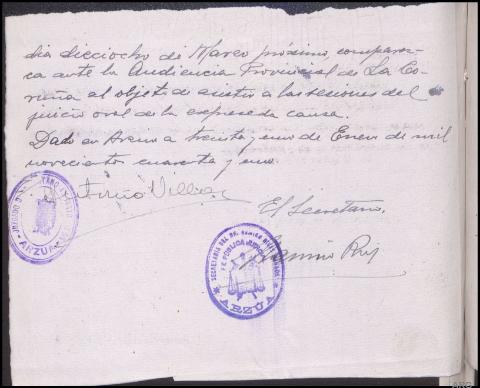 dia dieciocho de Marzo próximo, comparez-
ca ante la Audiencia Provincial de La Co-
ruña al objeto de asistir a las sesiones del
juicio oral de la expresada causa.
Dado en Arzua a treinta y uno de Enero de mil
novecientos cuarenta y uno.
El Secretario.
ARZUA
SECRETARIA DEL
FE PUBLICA JUDICIAL
ARZUA